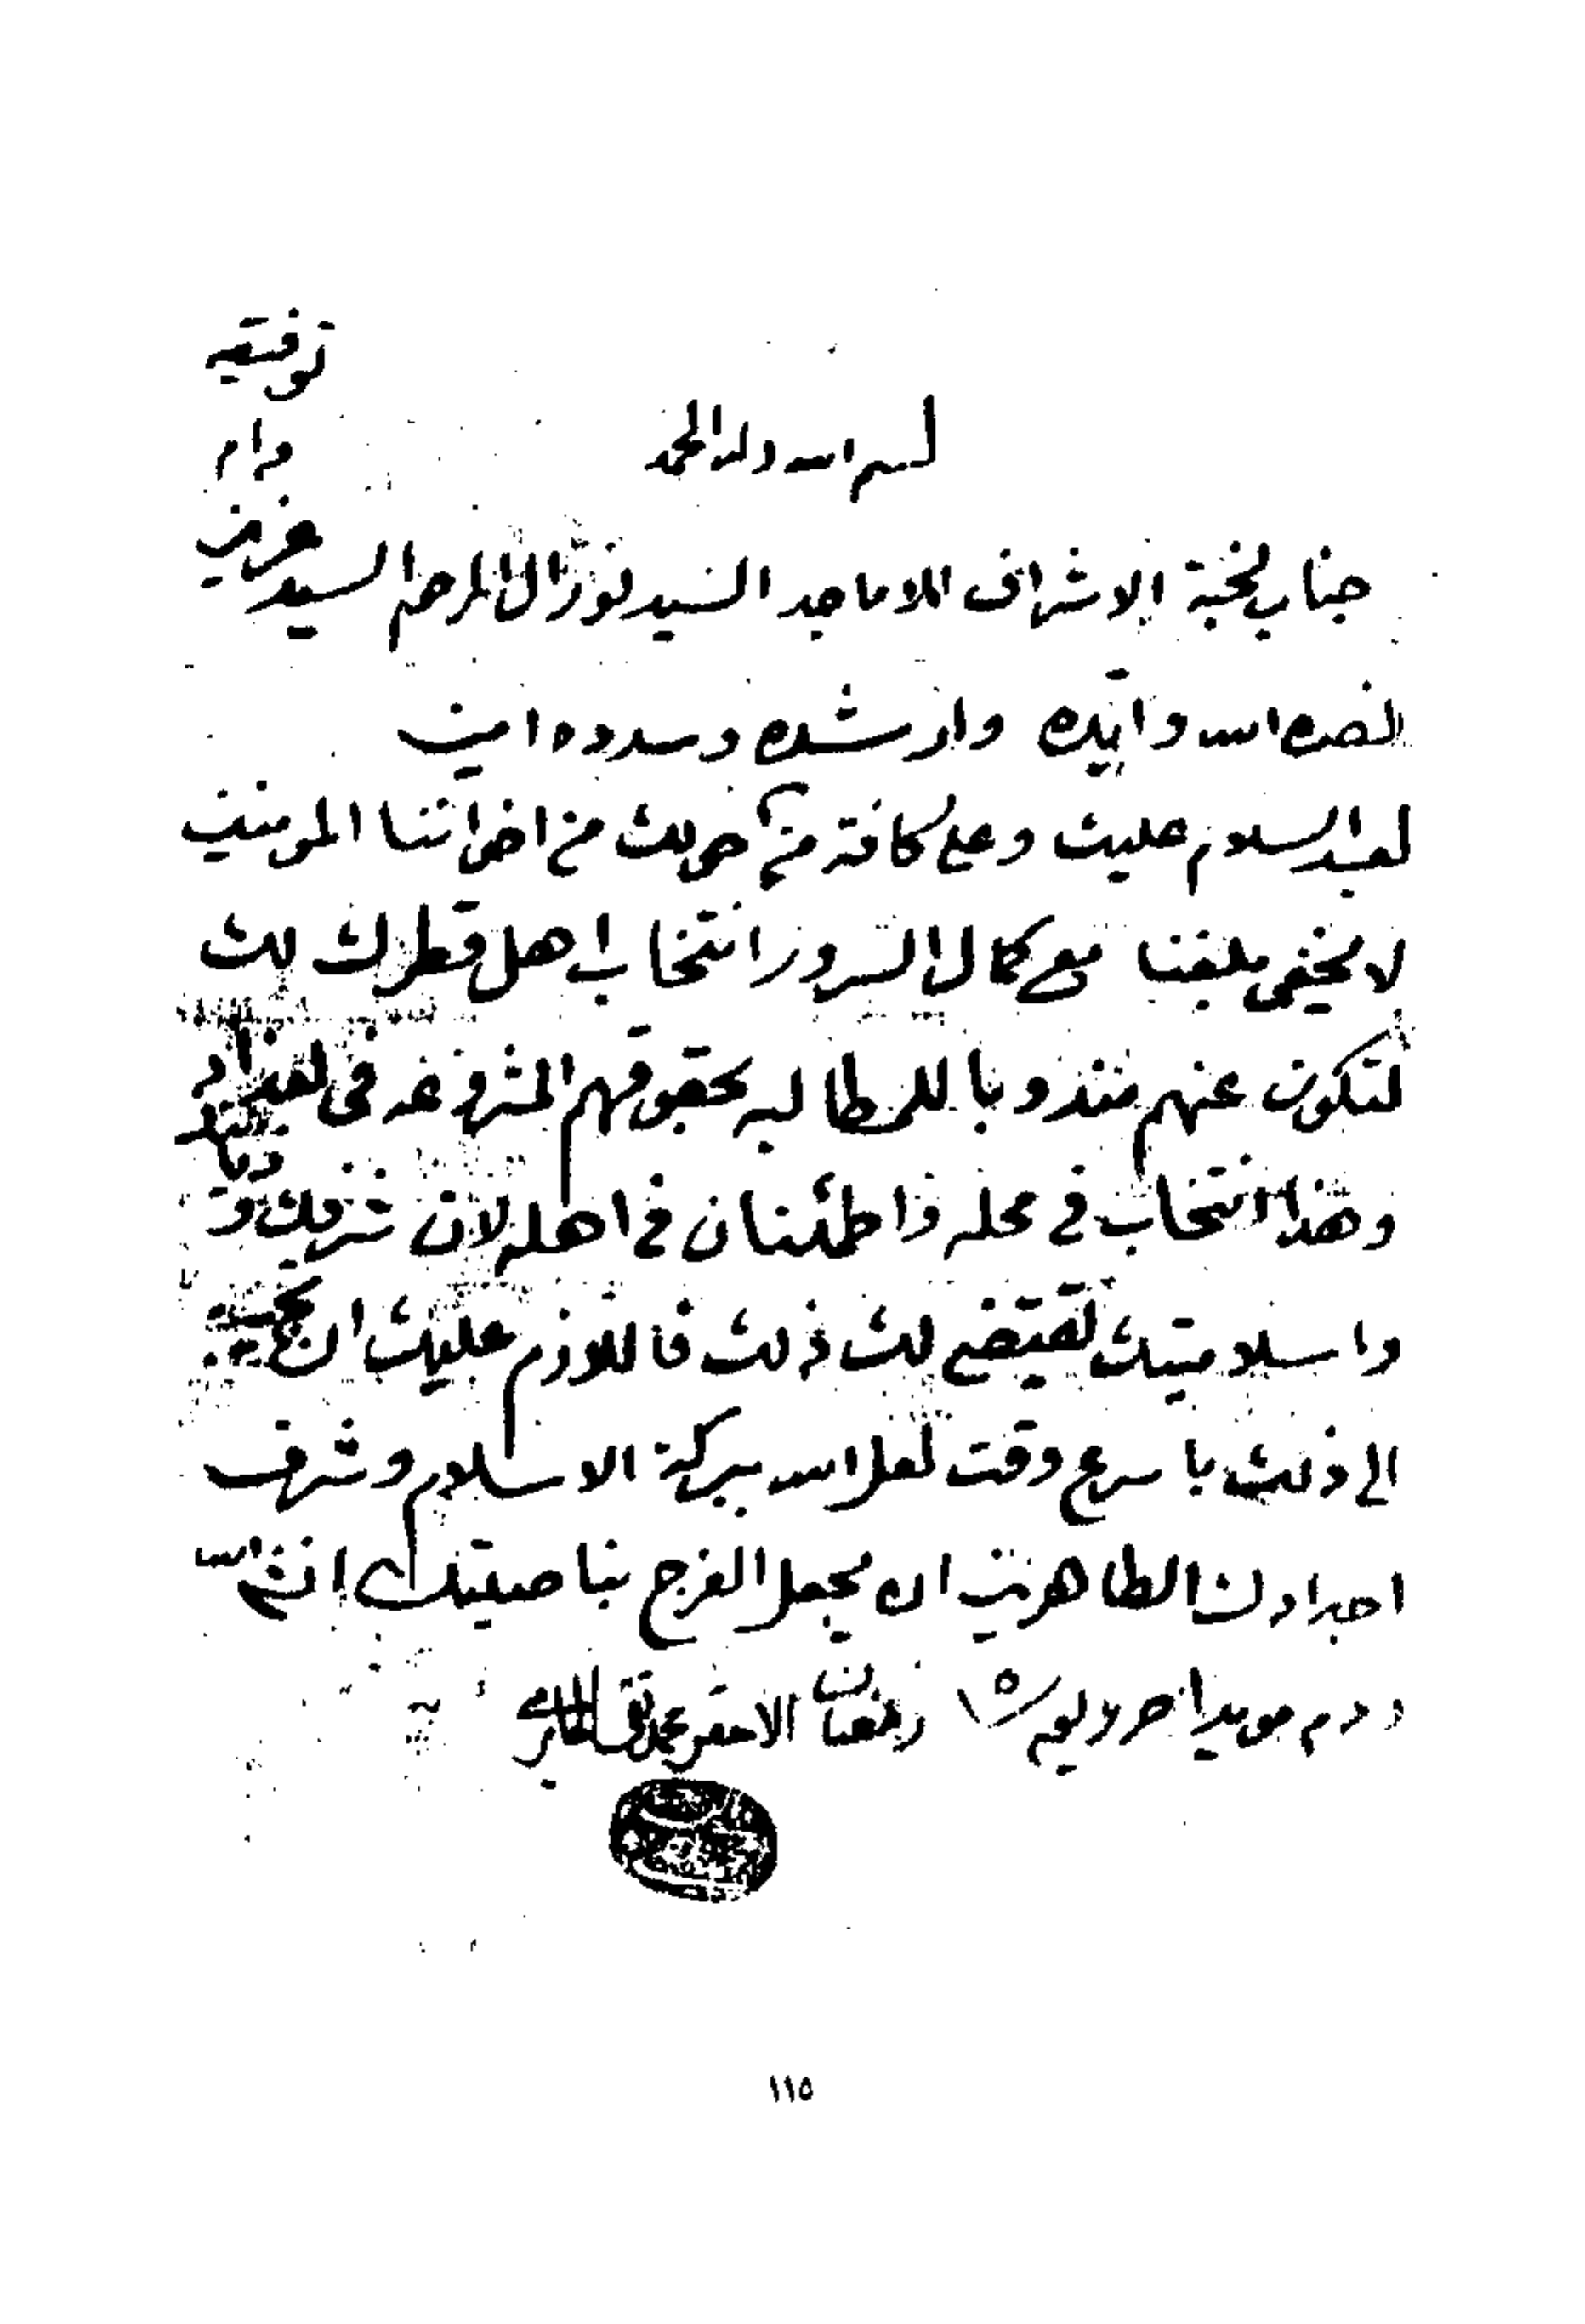 بسم الله وله الحمد
جناب نخبة الاشراف الاماجد السيد نور ال المرحوم السيد عزيز
دام
توفيقه
نصره الله وايّده وارشده وسدده امين
بعد السلام عليك وعلى كافة من حولك من اخواننا المومنين
لا يخفى بلغنا مع كمال السرور انتخاب اهل قطرك لك
لتكون عنهم مندوبا للمطالبه بحقوقهم المشروعه في بغداد
وهذا انتخاب في محله واطمئنان في اهله لان شرفك
واسلاميتك تقتضي لك ذلك فاللازم عليك ان تجيب
الى ذلك باسرع وقت لعل الله ببركة الاسلام وشرف
اجدادك الطاهرين ان يجعل الفرج بناصيتك انشاء الله
ودم مويدا حرر ليوم ٥ رمضان الاحقر محمد تقي الحائري
١١٥